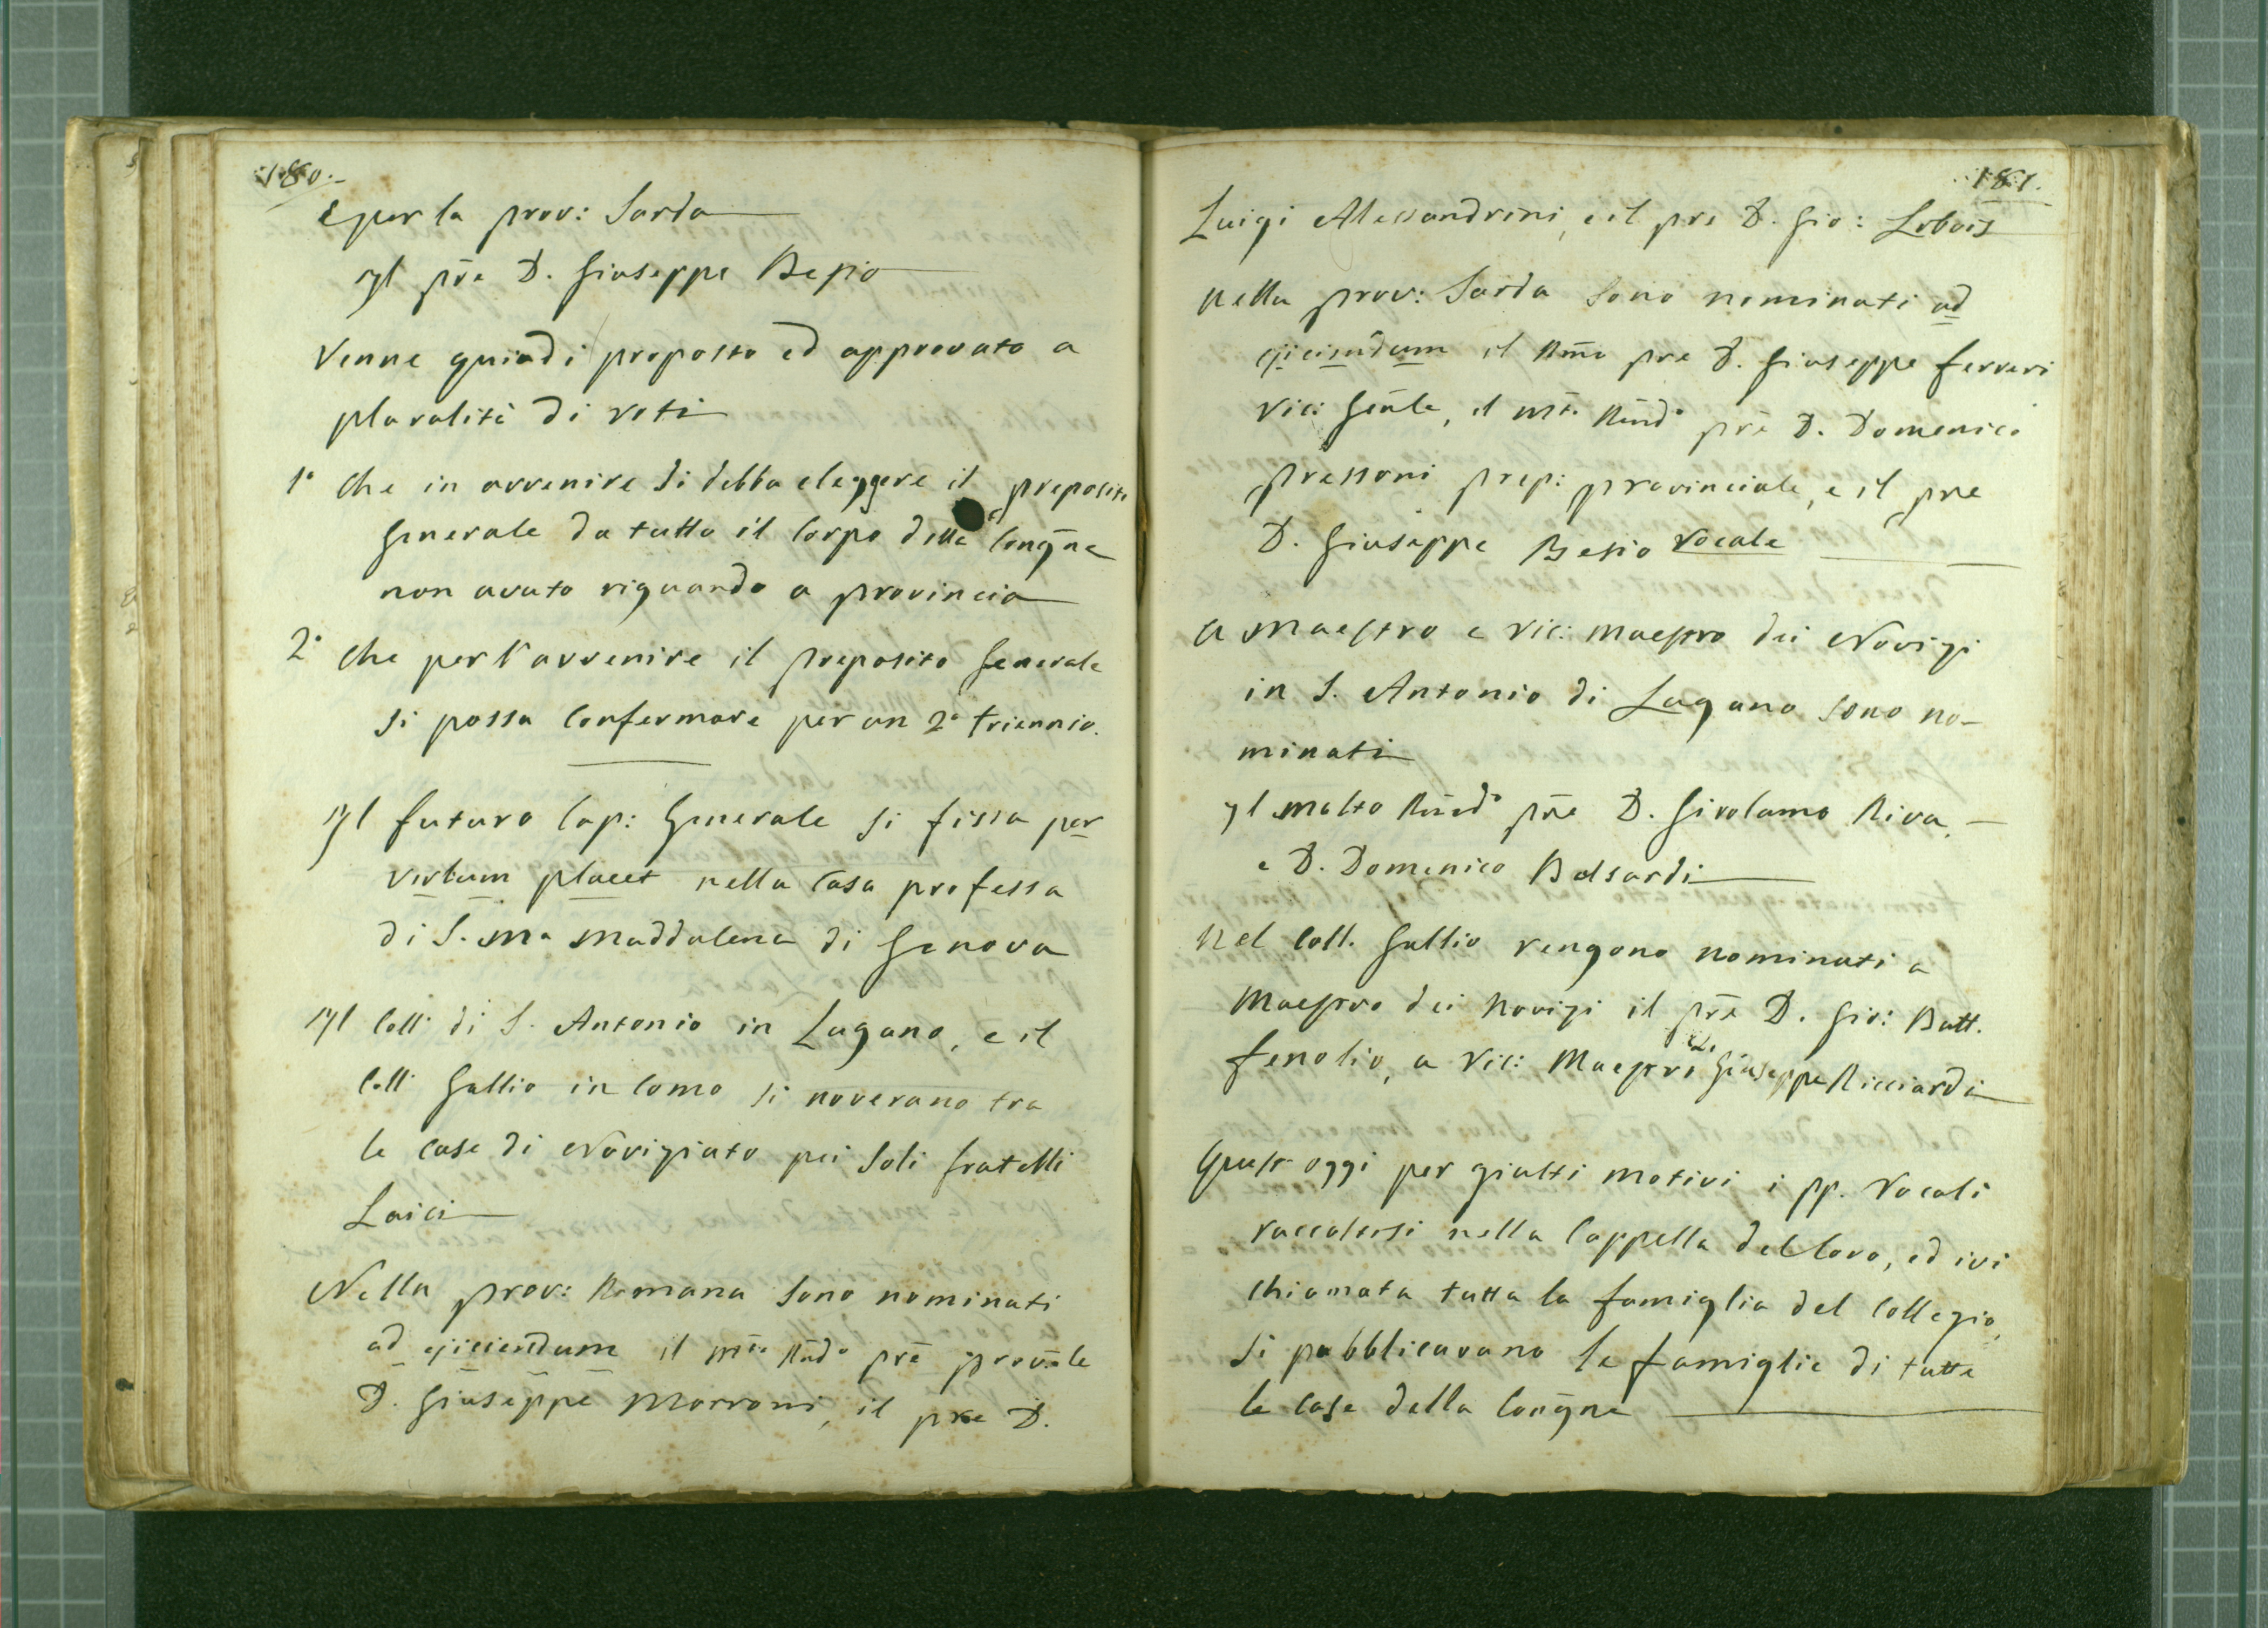 180.
E per la prov: Sarda
Il pre D. Giuseppe Besio
Venne quindi proposto ed approvato a
pluralità di voti
1° Che in avvenire si debba eleggere il preposito
Generale da tutto il Corpo della Congne
non avuto riguardo a provincia
2° Che per l'avvenire il preposito Generale
si possa Confermare per un 2° triennio.
Il futuro Cap: Generale si fissa per
verbum placet nella Casa professa
di S. Ma Maddalena di Genova
Il Coll: di S. Antonio in Lugano, e il
Coll: Gallio in Como si noverano tra
le case di Novizziato pei soli fratelli
Laici
Nella prov: Romana sono nominati
ad ejiciendum il mto Rndo pre provle
D. Giuseppe Morroni, il pre D.
181.
Luigi Alessandrini, e il pre D. Gio:
Nella prov: Sarda sono nominati ad
ejiciendum il Rmo pre D. Giuseppe Ferreri
Vic: Genle, il mto Rndo pre D. Domenico
Pressoni prep: provinciale, e il pre
D. Giuseppe Besio Vocale
A Maestro e Vic: Maestro dei Novizi
in S. Antonio di Lugano sono no-
minati
Il molto Rndo pre D. Girolamo Riva,
e D. Domenico
Nel Coll. Gallio vengono nominati a
Maestro dei Novizi il pre D. Gio: Batt.
Fenolio, a Vic: Maestro il Giuseppe Ricciardi
Quest'oggi per giusti motivi i pp. Vocali
raccoltisi nella Cappella del Coro, ed ivi
chiamata tutta la famiglia del Collegio,
si pubblicarono le famiglie di tutte
le Case della Congne